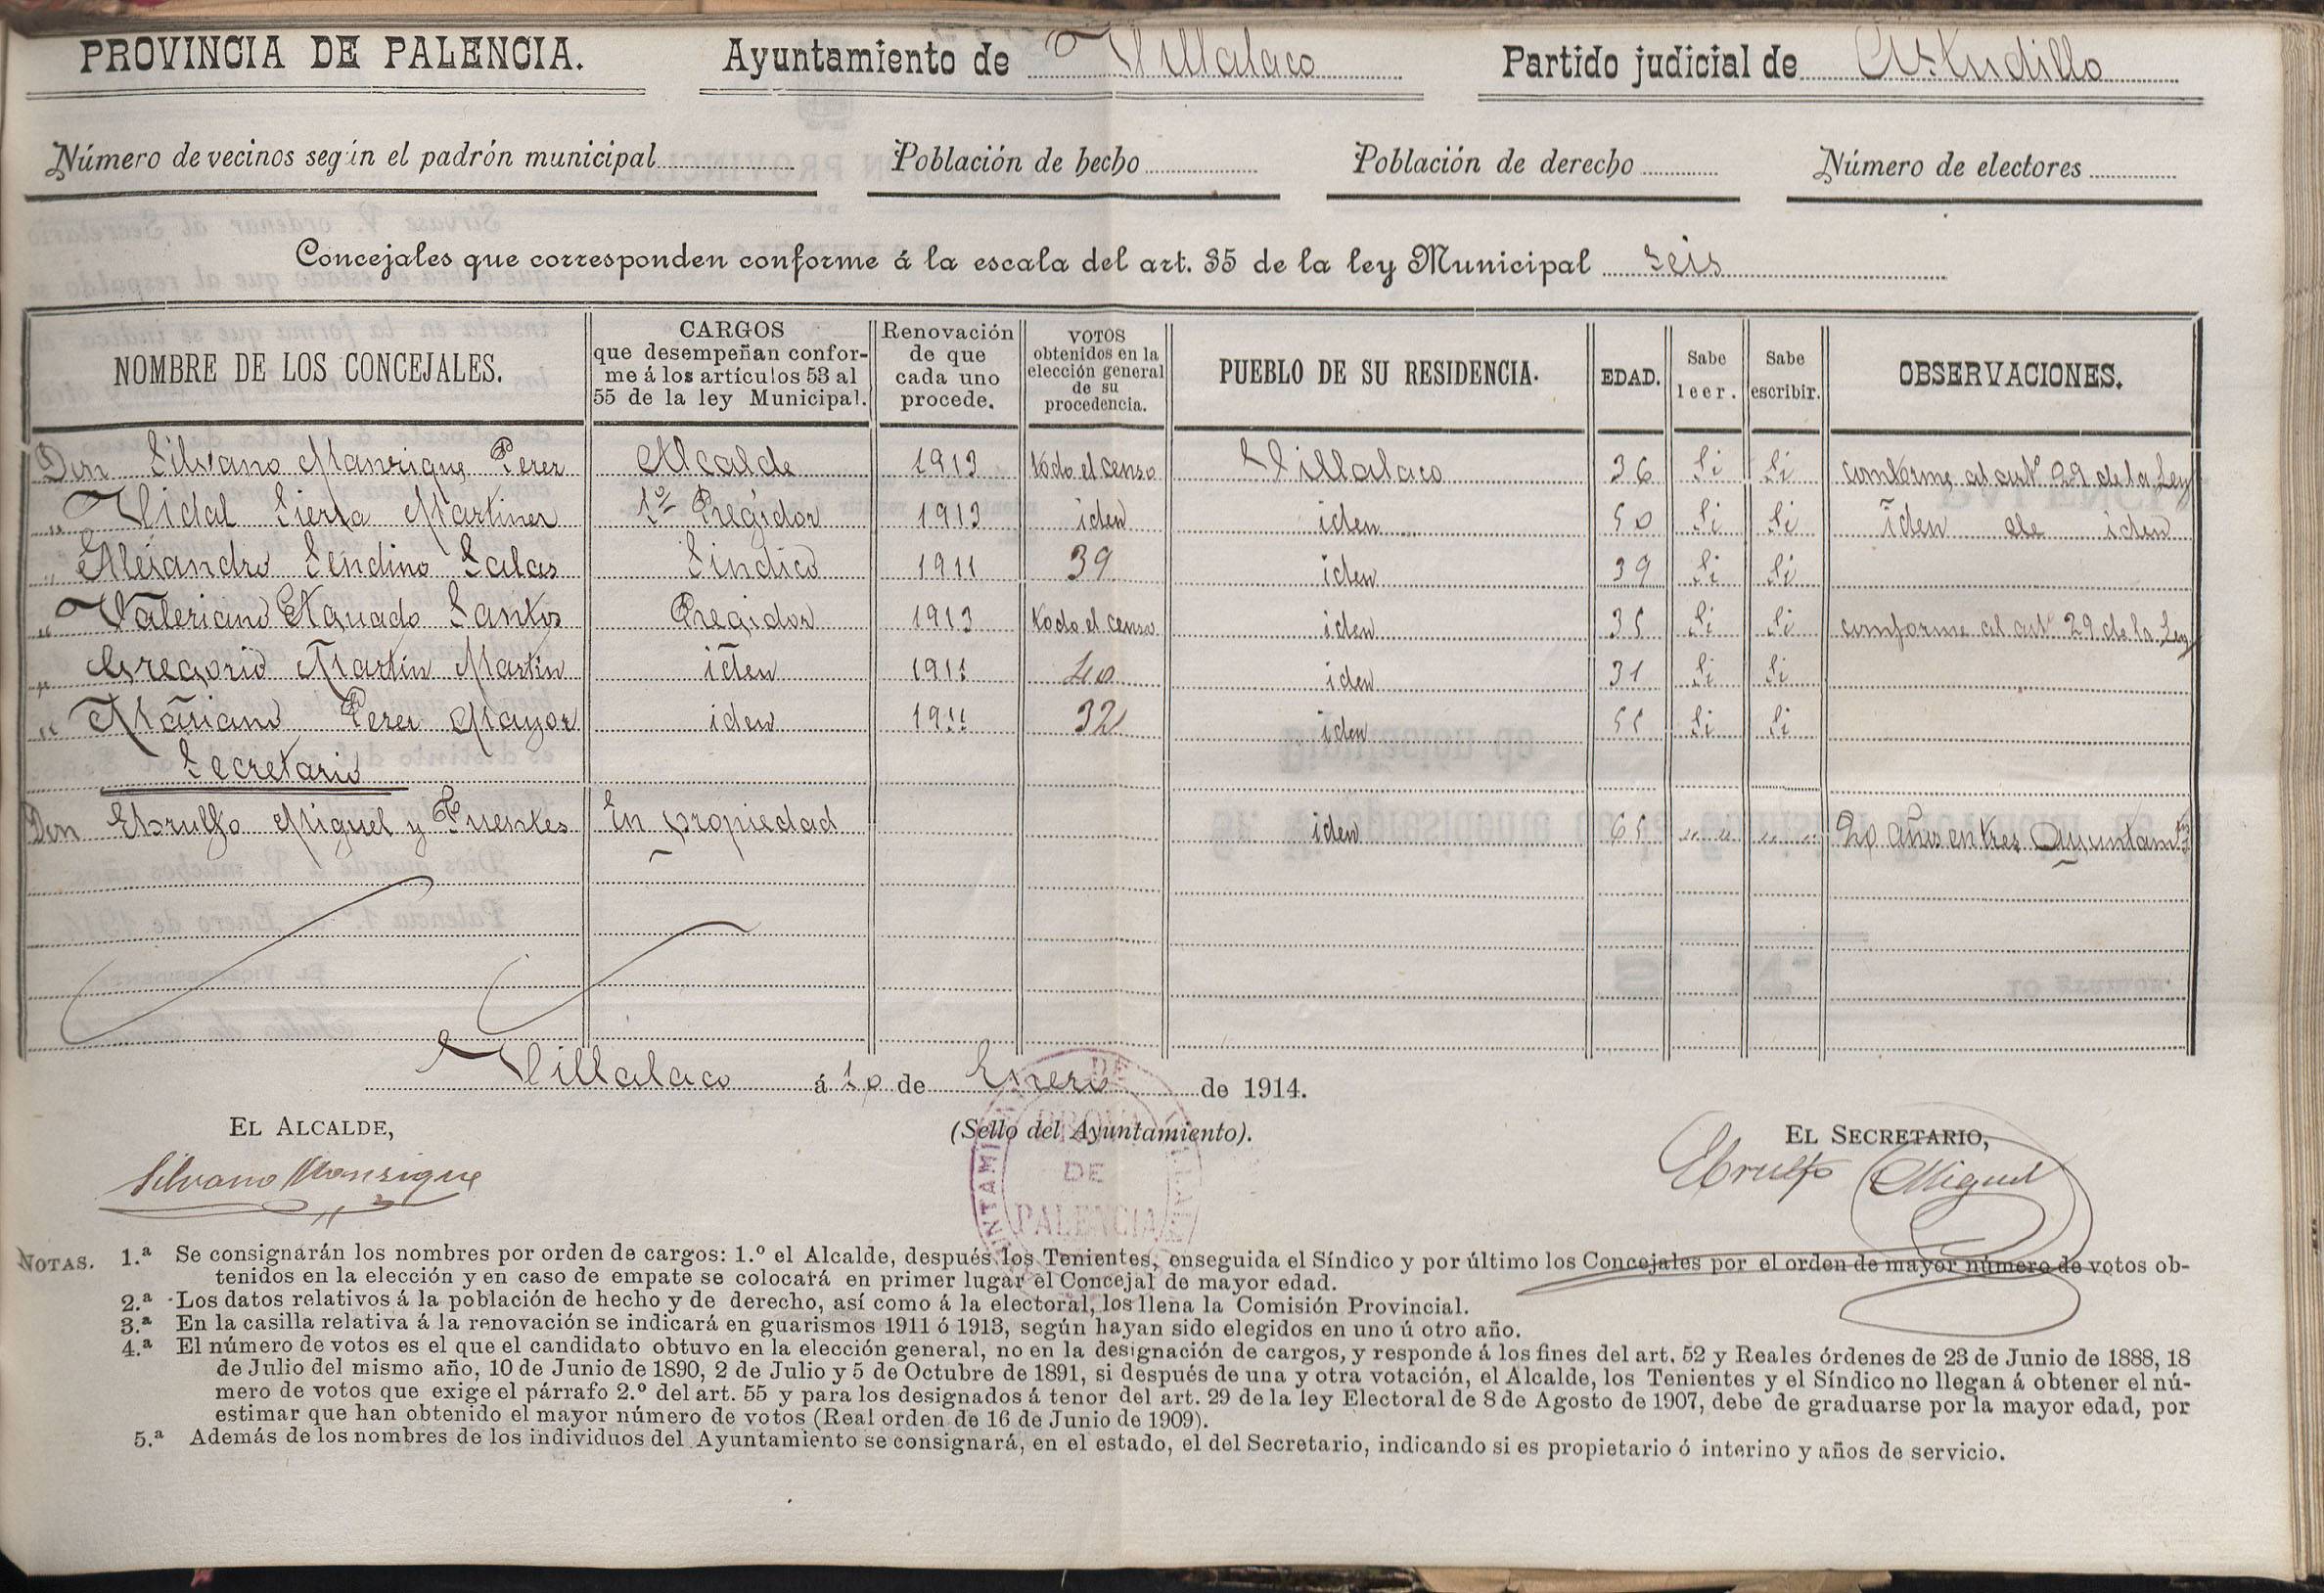 PROVINCIA DE PALENCIA. Ayuntamiento de Villalaco Partido judicial de Astudillo
Número de vecinos según el padrón municipal Población de hecho Población de derecho Número de electores
Concejales que corresponden conforme á la escala del art. 35 de la ley Municipal seis
NOMBRE DE LOS CONCEJALES. CARGOS que desempeñan conforme á los artículos 53 al 55 de la ley Municipal. Renovación de que cada uno procede. VOTOS obtenidos en la elección general de su procedencia. PUEBLO DE SU RESIDENCIA. EDAD. Sabe leer. Sabe escribir. OBSERVACIONES.
Don Silvano Manrique Perez Alcalde 1913 todo el censo Villalaco 36 Si Si conforme al artº 29 de la Ley
" Vidal Sierra Martinez 1º Regidor 1913 iden iden 50 Si Si iden de iden
" Alejandro Sendino Salas Sindico 1911 39 iden 39 Si Si
" Valeriano Aguado Santos Regidor 1913 todo el censo iden 35 Si Si conforme al artº 29 de la Ley
" Gregorio Martin Martin iden 1911 40 iden 31 Si Si
" Mariano Perez Mayor iden 1911 32 iden 55 Si Si
Secretario
Don Ebrulfo Miguel y Fuentes En propiedad iden 65 " " " " 20 años en tres Ayuntamtos
Villalaco á 10 de Enero de 1914.
EL ALCALDE, (Sello del Ayuntamiento). EL SECRETARIO,
Silvano Manrique Ebrulfo Miguel
DE
PROVA
DE
PALENCIA
NOTAS. 1.ª Se consignarán los nombres por orden de cargos: 1.º el Alcalde, después los Tenientes, enseguida el Síndico y por último los Concejales por el orden de mayor número de votos ob-
tenidos en la elección y en caso de empate se colocará en primer lugar el Concejal de mayor edad.
2.ª Los datos relativos á la población de hecho y de derecho, así como á la electoral, los llena la Comisión Provincial.
3.ª En la casilla relativa á la renovación se indicará en guarismos 1911 ó 1913, según hayan sido elegidos en uno ú otro año.
4.ª El número de votos es el que el candidato obtuvo en la elección general, no en la designación de cargos, y responde á los fines del art. 52 y Reales órdenes de 23 de Junio de 1888, 18
de Julio del mismo año, 10 de Junio de 1890, 2 de Julio y 5 de Octubre de 1891, si después de una y otra votación, el Alcalde, los Tenientes y el Síndico no llegan á obtener el nú-
mero de votos que exige el párrafo 2.º del art. 55 y para los designados á tenor del art. 29 de la ley Electoral de 8 de Agosto de 1907, debe de graduarse por la mayor edad, por
estimar que han obtenido el mayor número de votos (Real orden de 16 de Junio de 1909).
5.ª Además de los nombres de los individuos del Ayuntamiento se consignará, en el estado, el del Secretario, indicando si es propietario ó interino y años de servicio.